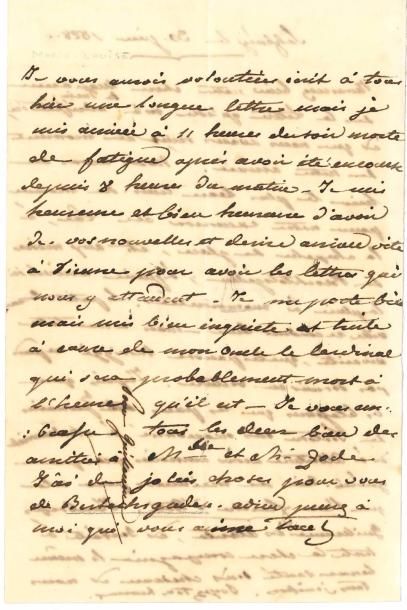 le 23 juin 1858
Je vous aurois volontiers écrit à tous
hier une longue lettre mais je
suis arrivée à 11 heures du soir morte
de fatigue après avoir été en course
depuis 8 heures du matin - Je suis
heureuse et bien heureuse d'avoir
de vos nouvelles et désire arriver vite
à Vienne pour avoir les lettres qui
nous y attendent - Je me porte bien
mais suis bien inquiète et triste
à cause de mon oncle le Cardinal
qui sera probablement mort à
l'heure qu'il est - Je vous em-
brasse tous les deux bien des
amitiés à Mde et Mr
J'ai de jolies choses pour vous
de adieu pensez à
moi qui vous aime